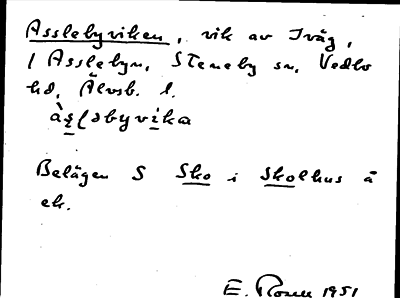 Asslebyviken, vik av Iväg,
i Asslebyn, Steneby sn, Vedbo
hd, Älvsb. l.
Belägen S Sko i Skolhus å
ek.
E. Rosell 1951